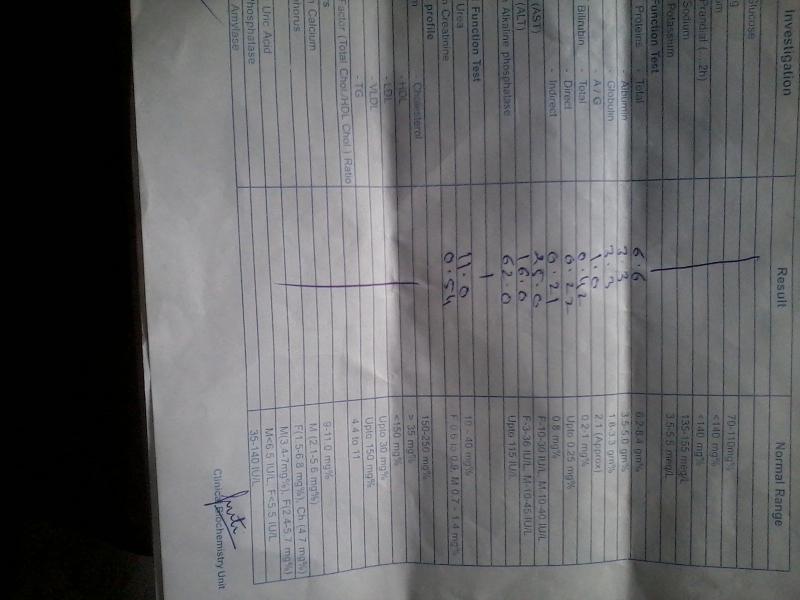 Investigation Result Normal Range
Glucose 70-110mg%
g <140 mg%
Prandial ( 2h) <140 mg%
Sodium 135-155 meq/L
Potassium 3.5-5.5 meq/L
Function Test
Proteins - Total 6.6 6.2-8.4 gm%
- Albumin 3.3 3.5-5.0 gm%
- Globulin 3.3 1.8-3.3 gm%
- A / G 1.0 2:1 (Approx)
Bilirubin - Total 0.42 0.2-1 mg%
- Direct 0.22 Upto 0.25 mg%
- Indirect 0.21 0.8 mg%
(AST) 25.0 F-10-30 IU/L M-10-40 IU/L
(ALT) 16.0 F-3-36 IU/L, M-10-45 IU/L
Alkaline phosphatase 62.0 Upto 115 IU/L
Function Test
Urea 11.0 10 - 40 mg%
Creatinine 0.54 F 0.6 to 0.9, M 0.7 - 1.4 mg%
profile
- Cholesterol 150-250 mg%
- HDL > 35 mg%
- LDL <150 mg%
- VLDL Upto 30 mg%
- TG Upto 150 mg%
Factor (Total Chol./HDL Chol.) Ratio 4.4 to 11
Calcium 9-11.0 mg%
M (2.1-5.6 mg%)
F(1.5-6.8 mg%), Ch (4.7 mg%)
Uric Acid M(3.4-7mg%), F(2.4-5.7 mg%)
M<6.5 IU/L, F<5.5 IU/L
Amylase 35-140 IU/L
Clinical Biochemistry Unit